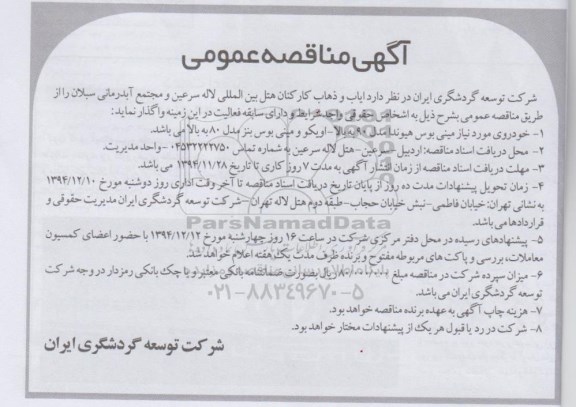 آگهی مناقصه عمومی
شرکت توسعه گردشگری ایران در نظر دارد ایاب و ذهاب کارکنان هتل بین المللی لاله سرعین و مجتمع آبدرمانی سبلان را از
طریق مناقصه عمومی بشرح ذیل به اشخاص حقوقی واجد شرایط و دارای سابقه فعالیت در این زمینه واگذار نماید:
۱- خودروی مورد نیاز مینی بوس هیوندا مدل ۹۰ به بالا - اویکو و مینی بوس بنز مدل ۸۰ به بالا می باشد.
۲- محل دریافت اسناد مناقصه: اردبیل - سرعین - هتل لاله سرعین به شماره تماس ۰۴۵۳۲۲۲۲۷۵۰ - واحد مدیریت.
۳- مهلت دریافت اسناد مناقصه از زمان انتشار آگهی به مدت ۷ روز کاری تا تاریخ ۱۳۹۴/۱۱/۲۸ می باشد.
۴- زمان تحویل پیشنهادات مدت ده روز از پایان تاریخ دریافت اسناد مناقصه تا آخر وقت اداری روز دوشنبه مورخ ۱۳۹۴/۱۲/۱۰
به نشانی تهران: خیابان فاطمی - نبش خیابان حجاب - طبقه دوم هتل لاله تهران - شرکت توسعه گردشگری ایران مدیریت حقوقی و
قراردادها می باشد.
ParsNamadData
۵- پیشنهادهای رسیده در محل دفتر مرکزی شرکت در ساعت ۱۶ روز چهارشنبه مورخ ۱۳۹۴/۱۲/۱۲ با حضور اعضای کمسیون
معاملات، بررسی و پاکت های مربوطه مفتوح و برنده ظرف مدت یک هفته اعلام خواهد شد.
۶- میزان سپرده شرکت در مناقصه مبلغ ریال بصورت ضمانتنامه بانکی معتبر و یا چک بانکی رمزدار در وجه شرکت
توسعه گردشگری ایران می باشد.
۰۲۱-۸۸۳۴۹۶۷۰-۵
۷- هزینه چاپ آگهی به عهده برنده مناقصه خواهد بود.
۸- شرکت در رد یا قبول هر یک از پیشنهادات مختار خواهد بود.
شرکت توسعه گردشگری ایران